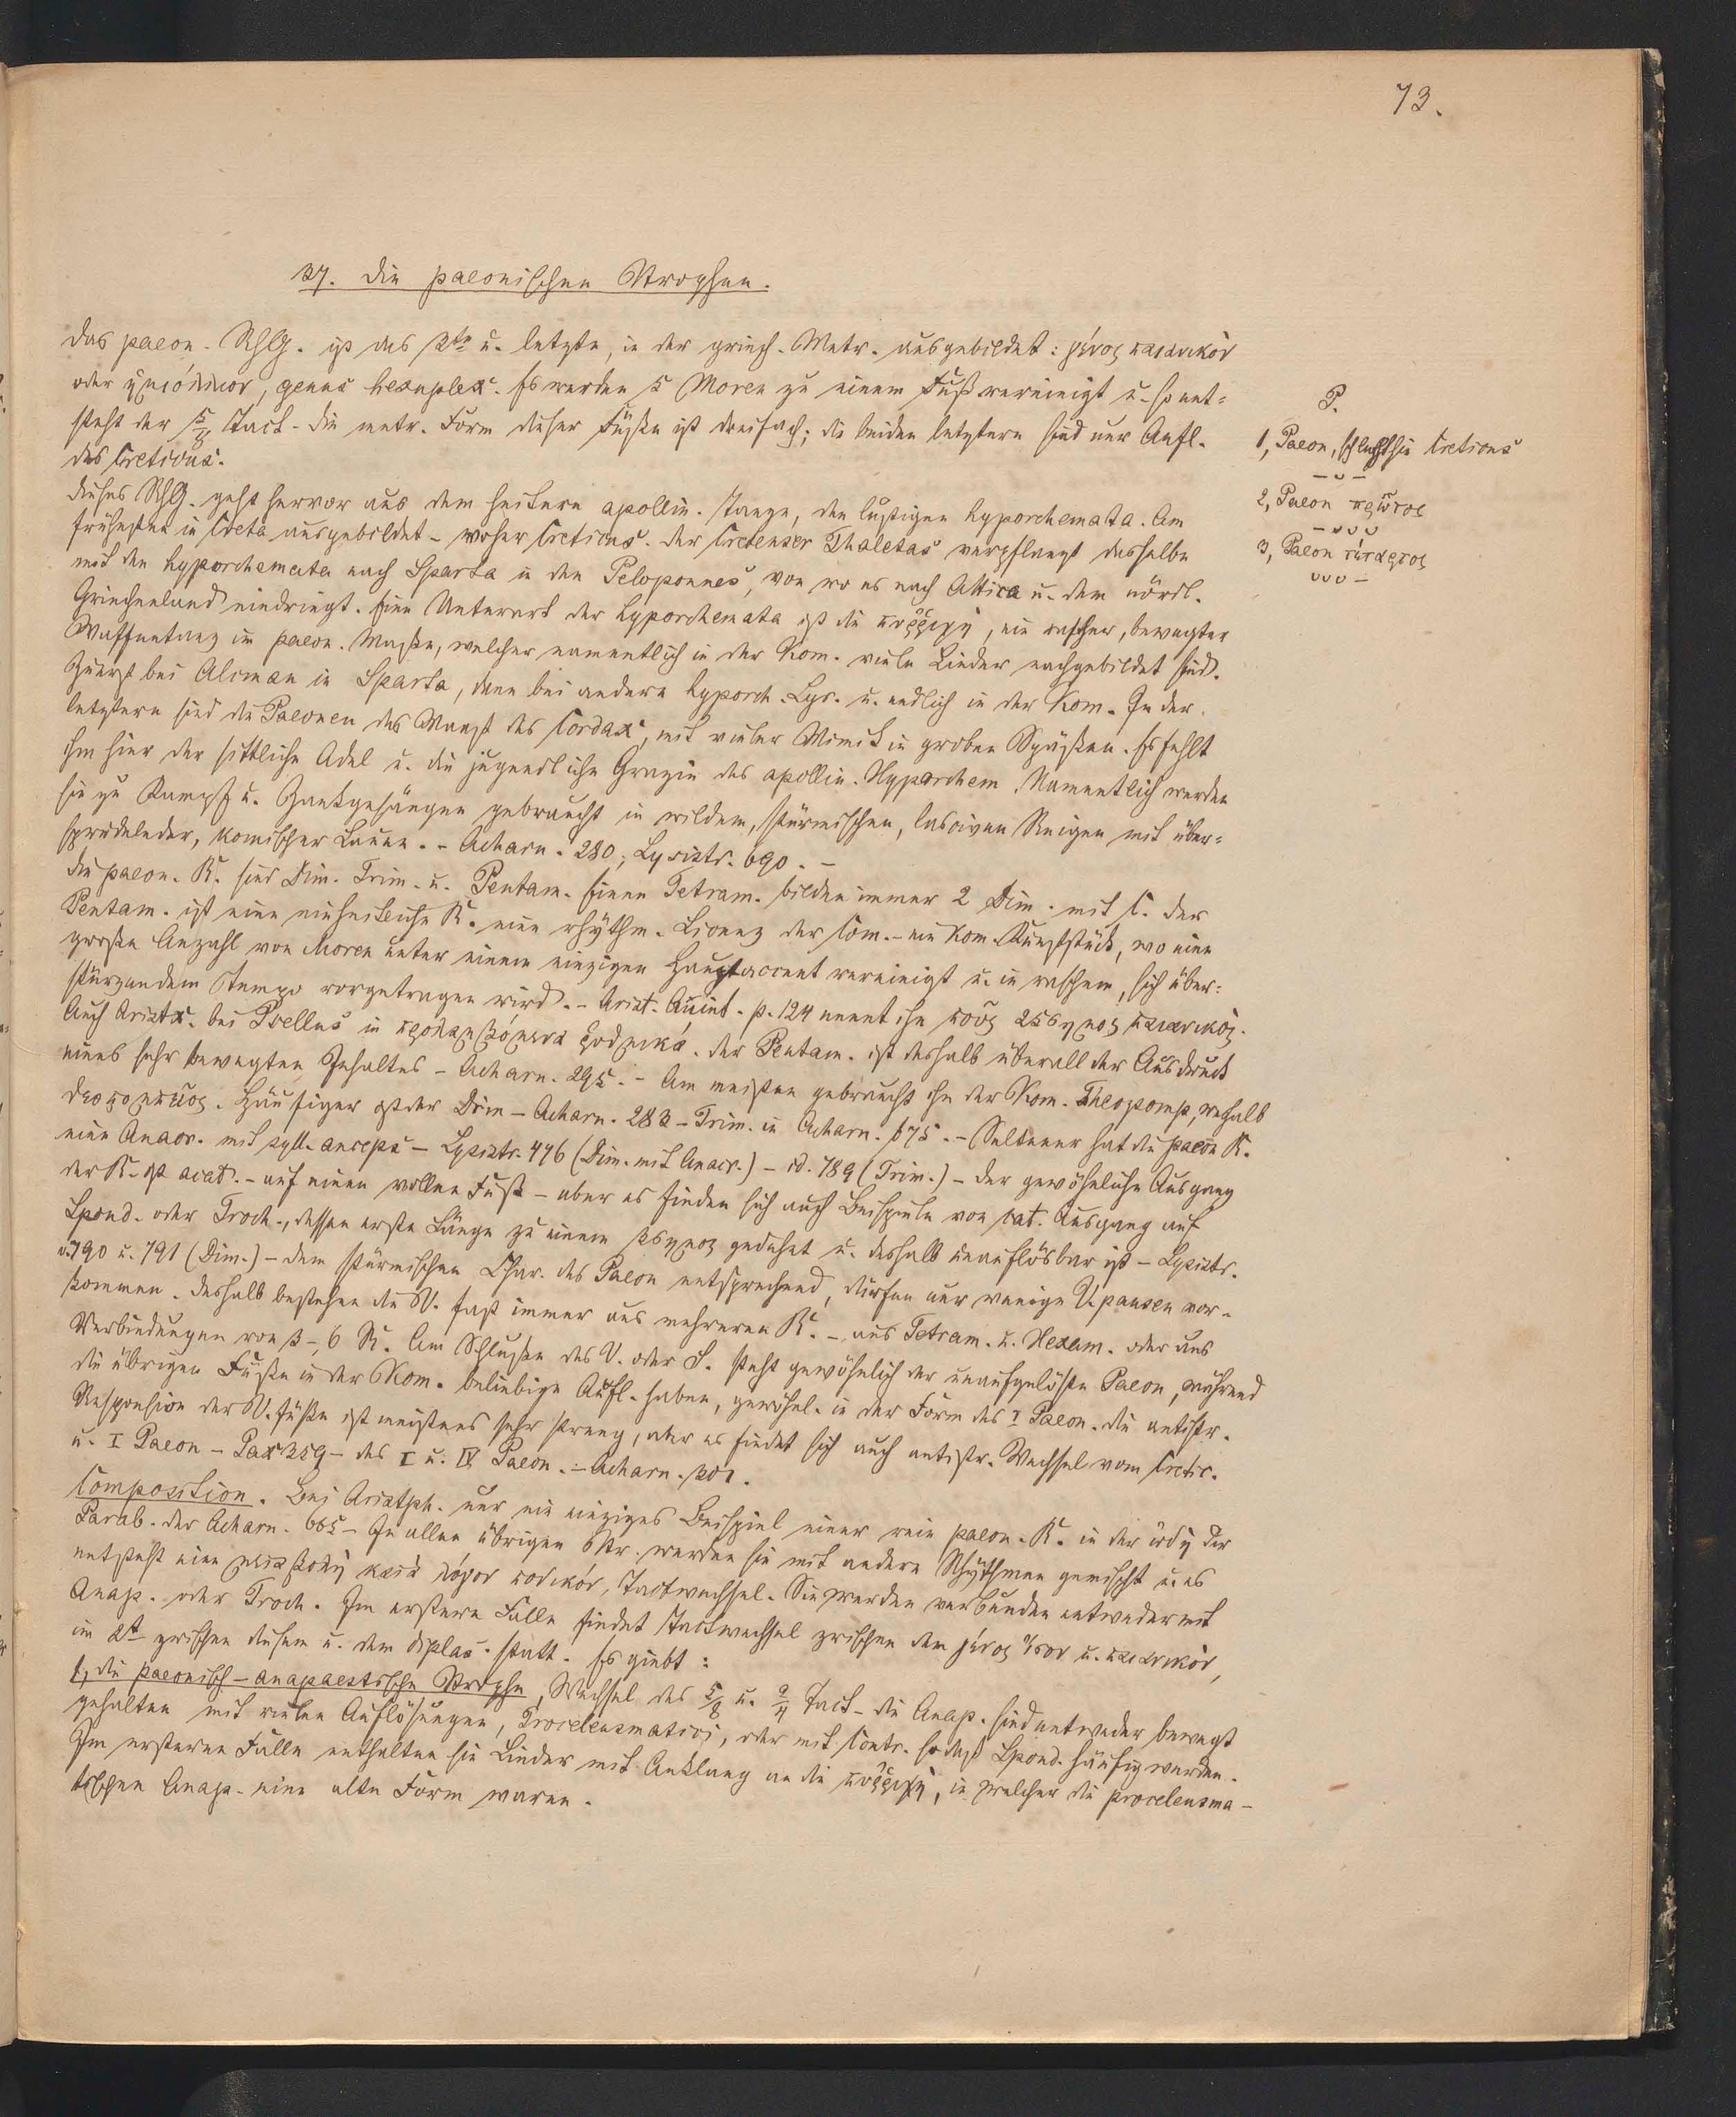 73.
37. Die paeonischen Strophen.
Das paeon. RhG. ist das 3te u. letzte, in der griech. Metr. ausgebildet: γένος παιωνικὸν
oder ἡμιόλιον, genus hexuplex. Es werden 5 Moren zu einem Fuß vereinigt u. so ent=
steht der 5/8 Tact. Die metr. Form dieser Füße ist dreifach; die beiden letztern sind nur Aufl.
des Creticus.
P.
1, Paeon, schlechthin Creticus
– ᴗ –
2, Paeon πρῶτος
– ᴗ ᴗ ᴗ
3, Paeon τέταρτος
ᴗ ᴗ ᴗ –
Dieses RhG. geht hervor aus dem heitern apollin. Tanze, den lustigen Hyporchemata. Am
frühesten in Creta ausgebildet – woher Creticus. Der Cretenser Thaletas verpflanzt dasselbe
mit den Hyporchemata nach Sparta in den Peloponnes, von wo es nach Attica u. dem nördl.
Griechenland eindringt. Eine Unterart der Hyporchemata ist die πυῤῥίχη, ein rascher, bewegter
Waffentanz im paeon. Maße, welcher namentlich in der Kom. viele Lieder nachgebildet sind.
Zuerst bei Alcman in Sparta, dann bei andern hyporch. Lyr. u. endlich in der Kom. In der
letztern sind die Paeonen das Maaß des Cordax, mit vieler Mimik in groben Späßen. Es fehlt
ihm hier der sittliche Adel u. die jugendliche Grazie des apollin. Hyporchem. Namentlich werden
sie zu Kampf u. Zankgesängen gebraucht in wildem, stürmischen, lasciven Reigen mit über=
sprudelnder, komischer Laune. – Acharn. 280; Lysistr. 690. –
Die paeon. R. sind Dim. Trim. u. Pentam. Einen Tetram. bilden immer 2 Dim. mit C. Der
Pentam. ist eine einheitliche R. eine rhythm. Licenz der Com. – ein kom. Kunststück, wo eine
große Anzahl von Moren unter einem einzigen Hauptaccent vereinigt u. in raschem, sich über=
stürzendem Tempo vorgetragen wird. – Arist. Quint. p. 124 nennt ihn ποῦς 25σημος παιωνικός.
Auch Aristx. bei Psellus in προλαμβόμενα ῥυθμικά. Der Pentam. ist deshalb überall der Ausdruck
eines sehr bewegten Inhaltes – Acharn. 295. – Am meisten gebraucht ihn der Kom. Theopomp, weßhalb
θεοπομπεῖος. Häufiger ist der Dim – Acharn. 283 – Trim. in Acharn. 975. – Seltener hat die paeon R.
eine Anacr. mit syll. anceps – Lysistr. 476 (Dim. mit Anacr.) – id. 789 (Trim.) – Der gewöhnliche Ausgang
der R. ist acat. – auf einen vollen Fuß – aber es finden sich auch Beispiele von cat. Ausgang auf
Spond. oder Troch., dessen erste Länge zu einem 3σημος gedehnt u. deshalb unauflösbar ist – Lysistr.
v. 790 u. 791 (Dim.) – Dem stürmischen Char. des Paeon entsprechend, dürfen nur wenige V. pausen vor=
kommen. Deshalb bestehen die V. fast immer aus mehreren R. – aus Tetram. u. Hexam. oder aus
Verbindungen von 3–6 R. Am Schluße des V. oder S. steht gewöhnlich der unaufgelöste Paeon, während
die übrigen Füße in der Kom. beliebige Aufl. haben, gewöhnl. in der Form des I Paeon. Die antistr.
Responsion der V. füße ist meistens sehr streng, aber es findet sich auch antistr. Wechsel vom Cretic.
u. I Paeon – Pax 359 – des I u. IV Paeon. – Acharn. 301.
Composition. Bei Aristph. nur ein einziges Beispiel einer rein paeon. R. in der ᾠδή der
Parab. der Acharn. 665 – In allen übrigen Str. werden sie mit andern Rhythmen gemischt u. es
entsteht eine μεταβολὴ κατὰ λόγον ποδικόν, Tactwechsel. Sie werden verbunden entweder mit
Anap. oder Troch. Im ersten Falle findet Tactwechsel zwischen dem γένος ἴσον u. παιωνικόν,
im 2t zwischen diesem u. dem diplas. statt. Es giebt:
1, die paeonisch–anapaestische Strophe, Wechsel des 5/8 u. 2/4 Tact – Die Anap. sind entweder bewegt
gehalten mit vielen Auflösungen, Proceleusmatici, oder mit Contr. so daß Spond. häufig werden.
Im ersteren Falle enthalten sie Lieder mit Anklang an die πυῤῥίχη, in welcher die proceleusma–
tischen Anap. eine alte Form waren.